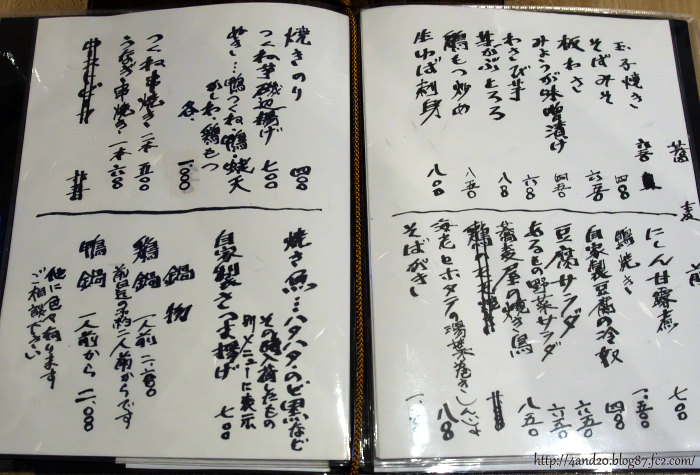 蕎麦前
玉子焼き
そばみそ 四〇〇
板わさ 六五〇
みょうが味噌漬け 四五〇
わさび芋 六〇〇
芽かぶとろろ
鶏もつ炒め 八五〇
生ゆば刺身 八〇〇
にしん甘露煮
鴨焼き 一、五〇〇
自家製豆腐の冷奴 四〇〇
豆腐サラダ 六五〇
とろもの野菜サラダ
蕎麦屋の焼き鳥 八五〇
海老とホタテの湯葉巻き
そばがき
焼きのり 四〇〇
つくね芋磯辺揚げ 七〇〇
ぬき…鴨つくね・鴨・天
かしわ・鶏もつ
各、一、〇〇〇
つくね串焼き 二本 五〇〇
うなぎ串焼き 一本 六〇〇
焼き魚…ハタハタ・のど黒など
その時入荷したもの
別メニューに表示
自家製さつま揚げ 七〇〇
鍋物
鶏鍋 一人前 二、六〇〇
前日迄の予約二人前からです
鴨鍋 一人前から 二、〇〇〇
他に色々有ります
ご相談下さい
http://4and20.blog87.fc2.com/